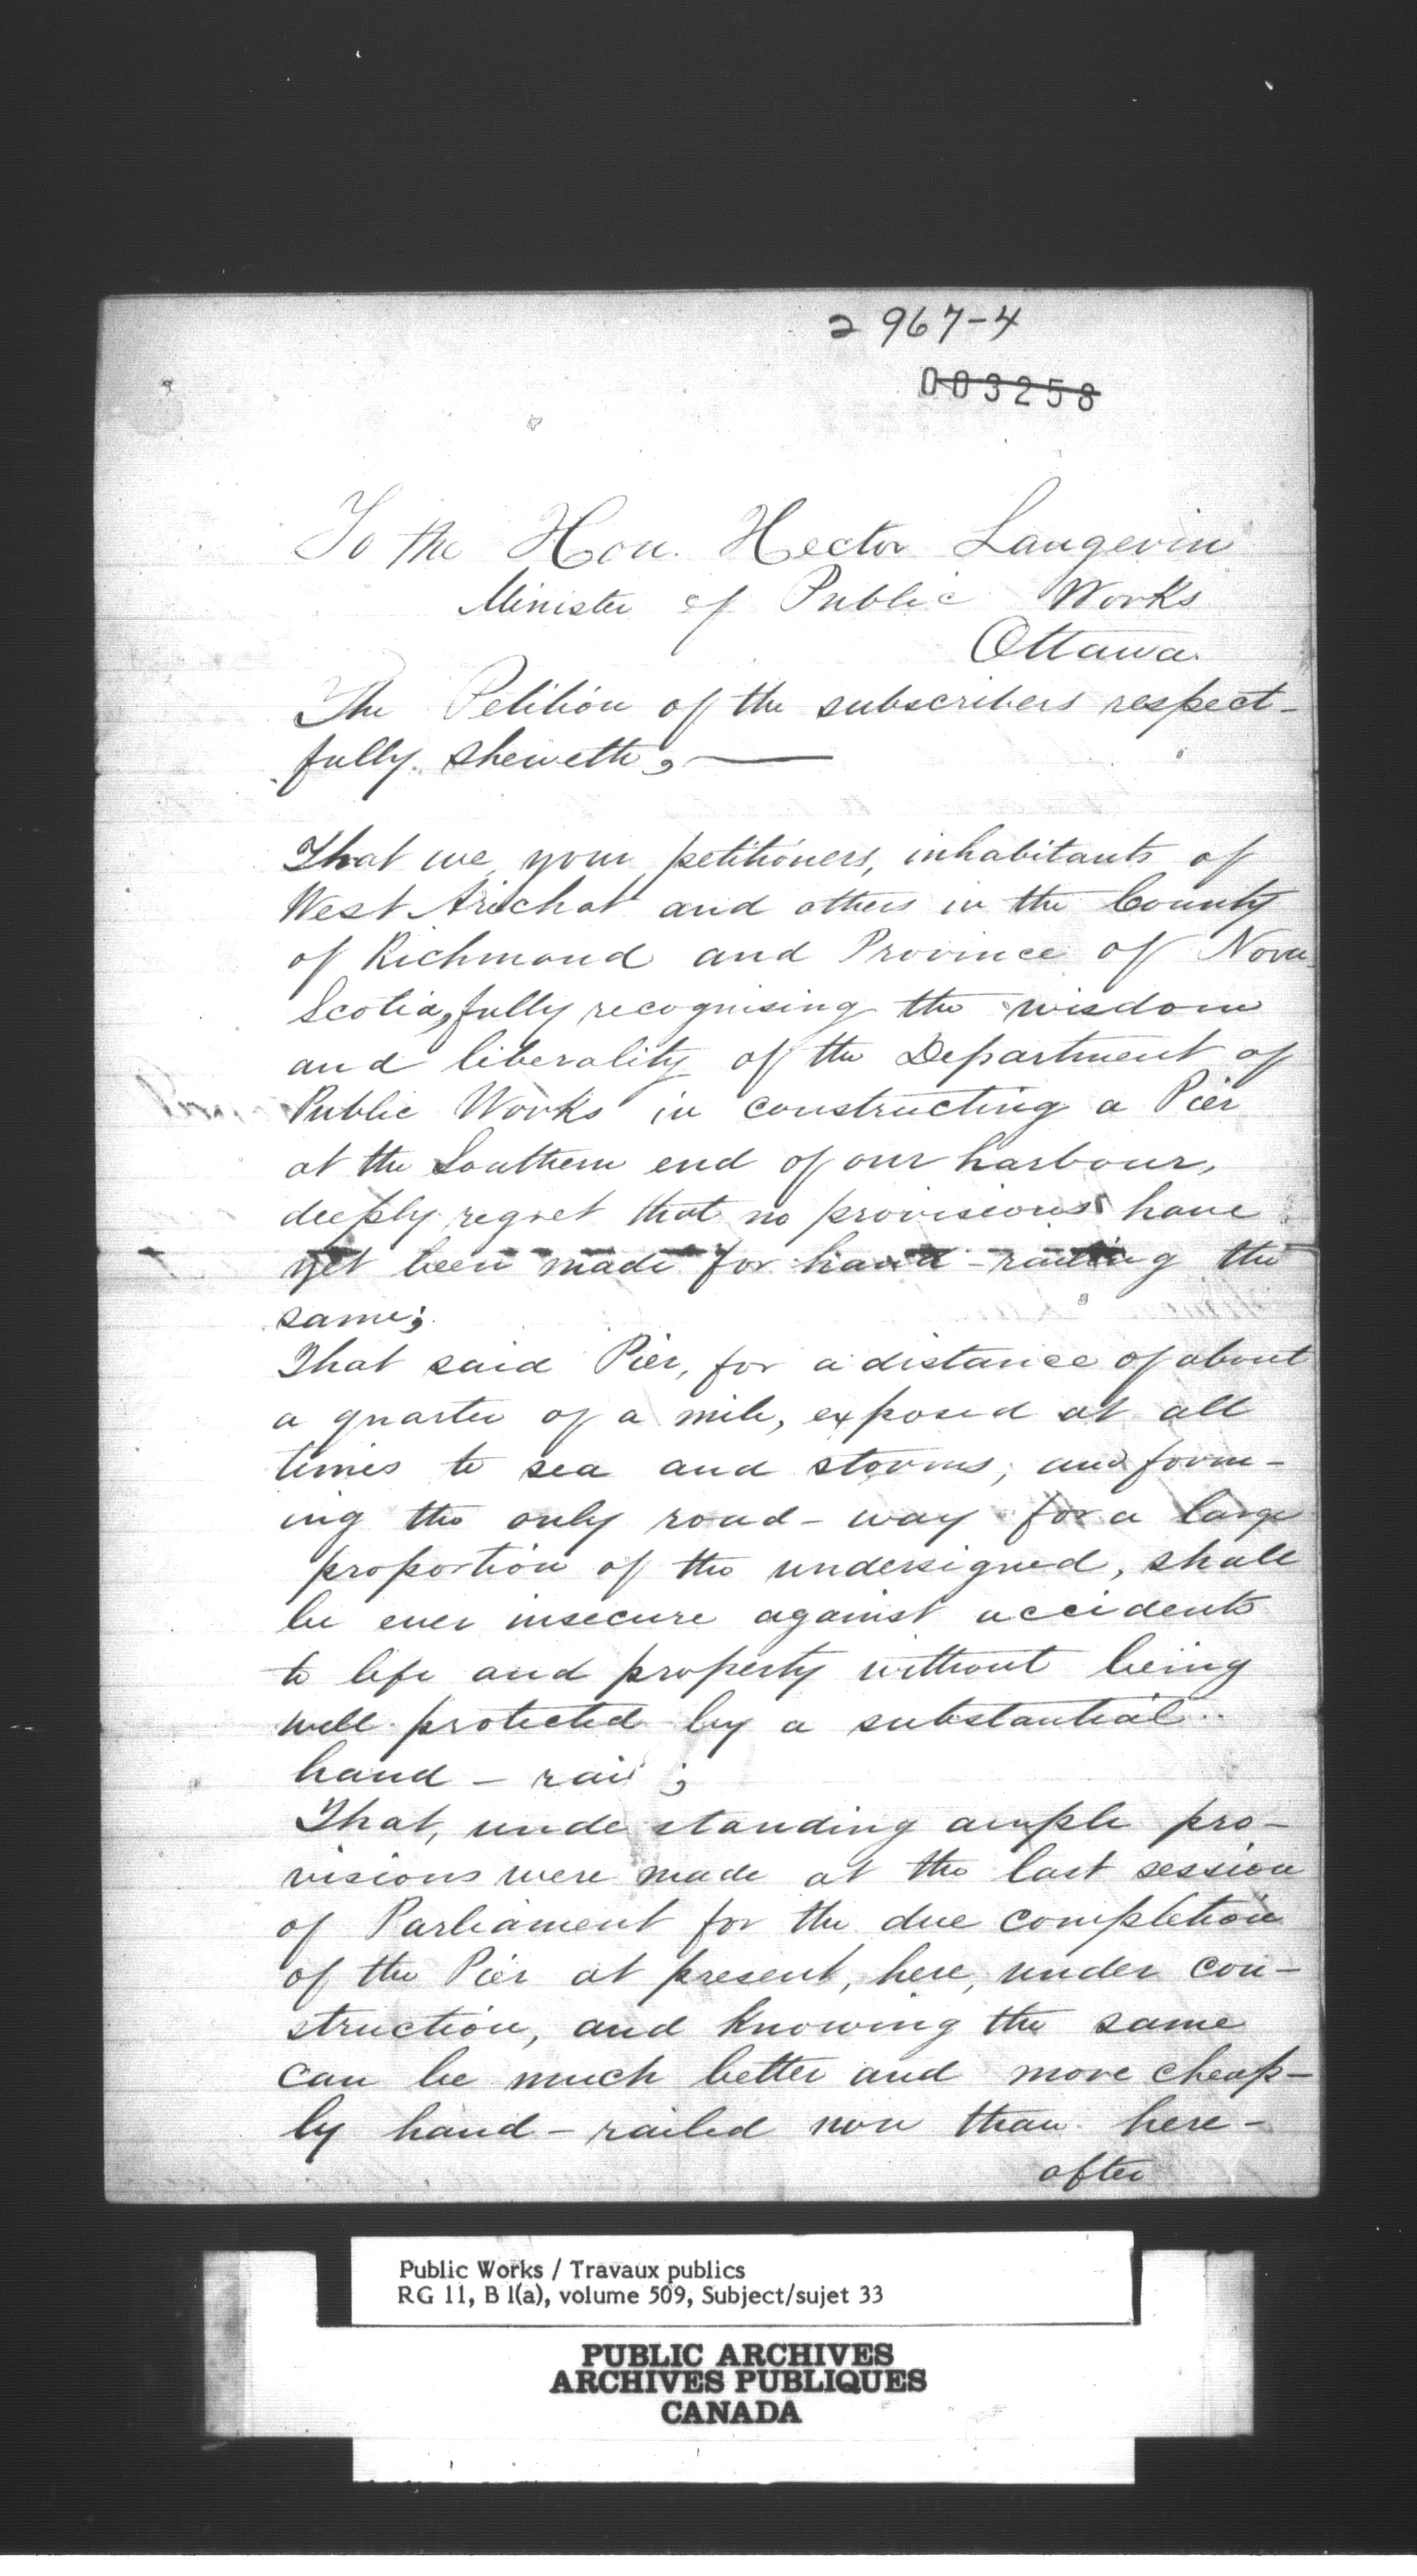 2967-4
003258
To the Hon. Hector Langevin
Minister of Public Works
Ottawa.
The Petition of the subscribers respect-
fully sheweth,—
That we, your petitioners, inhabitants of
West Arichat and others in the County
of Richmond and Province of Nova
Scotia, fully recognising the wisdom
and liberality of the Department of
Public Works in constructing a Pier
at the Southern end of our harbour,
deeply regret that no provisions have
yet been made for hand-railing the
same;
That said Pier, for a distance of about
a quarter of a mile, exposed at all
times to sea and storms, and form-
ing the only road-way for a large
proportion of the undersigned, shall
be ever insecure against accidents
to life and property without being
well protected by a substantial
hand-rail;
That, understanding ample pro-
visions were made at the last session
of Parliament for the due completion
of the Pier at present, here, under con-
struction, and knowing the same
can be much better and more cheap-
ly hand-railed now than here-
after
Public Works / Travaux publics
RG 11, B 1(a), volume 509, Subject/sujet 33
PUBLIC ARCHIVES
ARCHIVES PUBLIQUES
CANADA